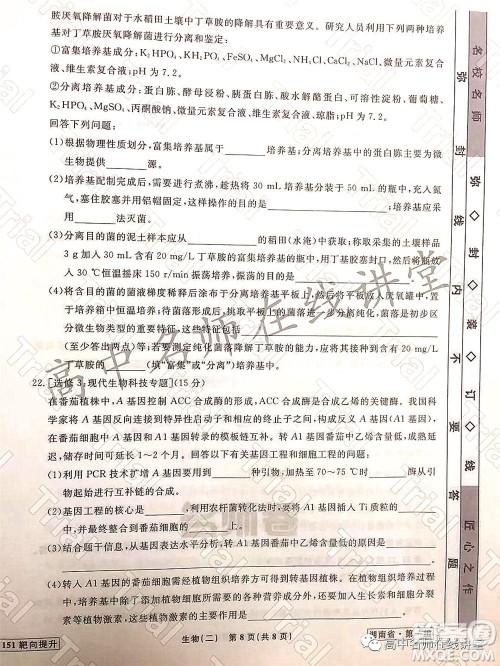 胺厌氧降解菌对于水稻田土壤中丁草胺的降解具有重要意义。研究人员利用下列两种培养
基对丁草胺厌氧降解菌进行分离和鉴定:
①富集培养基成分:K₂HPO₄、KH₂PO₄、FeSO₄、MgCl₂、NH₄Cl、CaCl₂、NaCl、微量元素复合
液、维生素复合液;pH为7.2。
②分离培养基成分:蛋白胨、酵母浸粉、胰蛋白胨、酸水解酪蛋白、可溶性淀粉、葡萄糖、
K₂HPO₄、MgSO₄、丙酮酸钠、微量元素复合液、维生素复合液、琼脂;pH为7.2。
回答下列问题:
(1)根据物理性质划分,富集培养基属于 培养基;分离培养基中的蛋白胨主要为微
生物提供 源。
(2)培养基配制完成后,需要进行煮沸,趁热将30 mL培养基分装于50 mL的瓶中,充入氮
气,塞住胶塞并用铝帽固定,这样操作的目的是 ;培养基应采
用 法灭菌。
(3)分离目的菌的泥土样本应从 的稻田(水淹)中获取;称取采集的土壤样品
3 g加入30 mL含有20 mg/L丁草胺的富集培养基的瓶中,用丁基胶密封口,然后将瓶放
入30 ℃恒温摇床150 r/min振荡培养,振荡的目的是
(4)将含目的菌的菌液梯度稀释后涂布于分离培养基平板上,然后将平板放入厌氧罐中,置
于培养箱中恒温培养;待菌落形成后,挑取平板上的菌落进行分离鉴定,菌落的形态是初步区
分微生物类型的重要特征,这些特征包括
(至少答出两点);若要测定纯化菌落降解丁草胺的能力,应将其接种到含有20 mg/L
丁草胺的 (填“富集”或“分离”)培养基中。
22.[选修3:现代生物科技专题](15分)
在番茄植株中,A基因的表达能激活控制ACC合成酶的形成,ACC合成酶是合成乙烯的关键酶。我国科
学家将A基因反向连接到特异性启动子和终止子之间,构成反义A基因(A1基因),
在番茄细胞中建立反义RNA系统,结果发现转入A1基因的番茄中乙烯含量低,成熟延
迟,储存时间可延长1~2个月。回答以下有关基因工程和细胞工程的问题:
(1)利用PCR技术扩增A基因要用到 种引物,加热至70~75 ℃时 酶从引
物起始进行互补链的合成。
(2)基因工程的核心是 ,利用农杆菌转化法时,要将A1基因插入Ti质粒的
中,并最终整合到番茄细胞的 上。
(3)从基因表达水平分析,转A1基因番茄中乙烯含量低的原因是
。
(4)转入A1基因的番茄细胞需经植物组织培养方可得到转基因植株。在植物组织培养
过程中,培养基中除无机营养成分、有机营养成分、琼脂外,还需要添加植物激素。添加
这些植物激素的作用是
151靶向提升
生物(二) 第8页(共8页)
湖南省·第
名校名师
弥
封
线
内
不
要
答
题
弥
封
装
订
线
匠心之作
高中名师在线讲堂
高中名师在线讲堂
Trial
答案圈